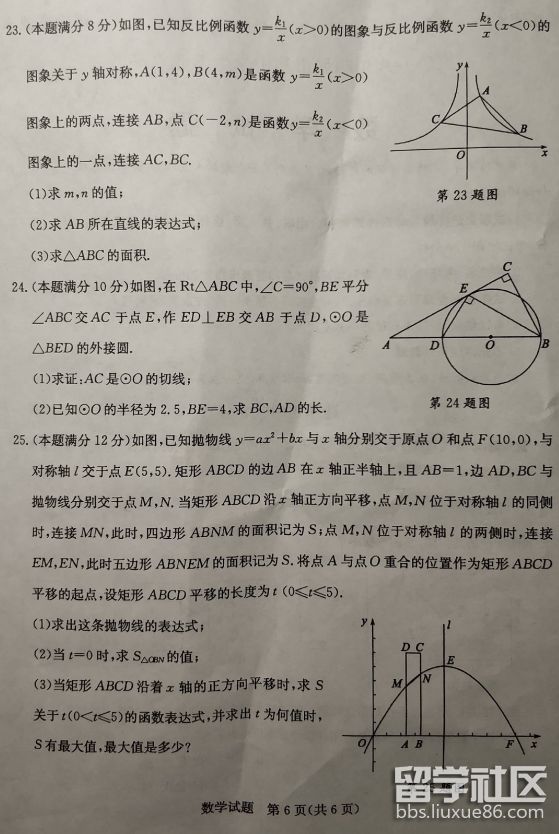 23.(本题满分8分)如图,已知反比例函数 y=k₁/x(x>0)的图象与反比例函数 y=k₂/x(x<0)的
图象关于 y 轴对称,A(1,4),B(4,m)是函数 y=k₁/x(x>0)
图象上的两点,连接 AB,点 C(-2,n)是函数y=k₂/x(x<0)
图象上的一点,连接 AC,BC.
(1)求 m,n 的值;
(2)求 AB 所在直线的表达式;
(3)求△ABC 的面积.
y
A
C
B
O
x
第 23 题图
24.(本题满分 10 分)如图,在 Rt△ABC 中,∠C=90°,BE 平分
∠ABC 交 AC 于点 E,作 ED⊥EB 交 AB 于点 D,⊙O 是
△BED 的外接圆.
(1)求证:AC 是⊙O 的切线;
(2)已知⊙O 的半径为 2.5,BE=4,求 BC,AD 的长.
C
E
A
D
O
B
第 24 题图
25.(本题满分 12 分)如图,已知抛物线 y=ax²+bx 与 x 轴分别交于原点 O 和点 F(10,0),与
对称轴 l 交于点 E(5,5). 矩形 ABCD 的边 AB 在 x 轴正半轴上,且 AB=1,边 AD,BC 与
抛物线分别交于点 M,N. 当矩形 ABCD 沿 x 轴正方向平移,点 M,N 位于对称轴 l 的同侧
时,连接 MN,此时,四边形 ABNM 的面积记为 S;点 M,N 位于对称轴 l 的两侧时,连接
EM,EN,此时五边形 ABNEM 的面积记为 S. 将点 A 与点 O 重合的位置作为矩形 ABCD
平移的起点,设矩形 ABCD 平移的长度为 t (0≤t≤5).
(1)求出这条抛物线的表达式;
(2)当 t=0 时,求 S△OBN 的值;
(3)当矩形 ABCD 沿着 x 轴的正方向平移时,求 S
关于 t(0<t≤5)的函数表达式,并求出 t 为何值时,
S 有最大值,最大值是多少?
y
l
D C
E
M
N
O
A B
F
x
数学试题 第 6 页(共 6 页)
留学社区
bbs.liuxue86.com